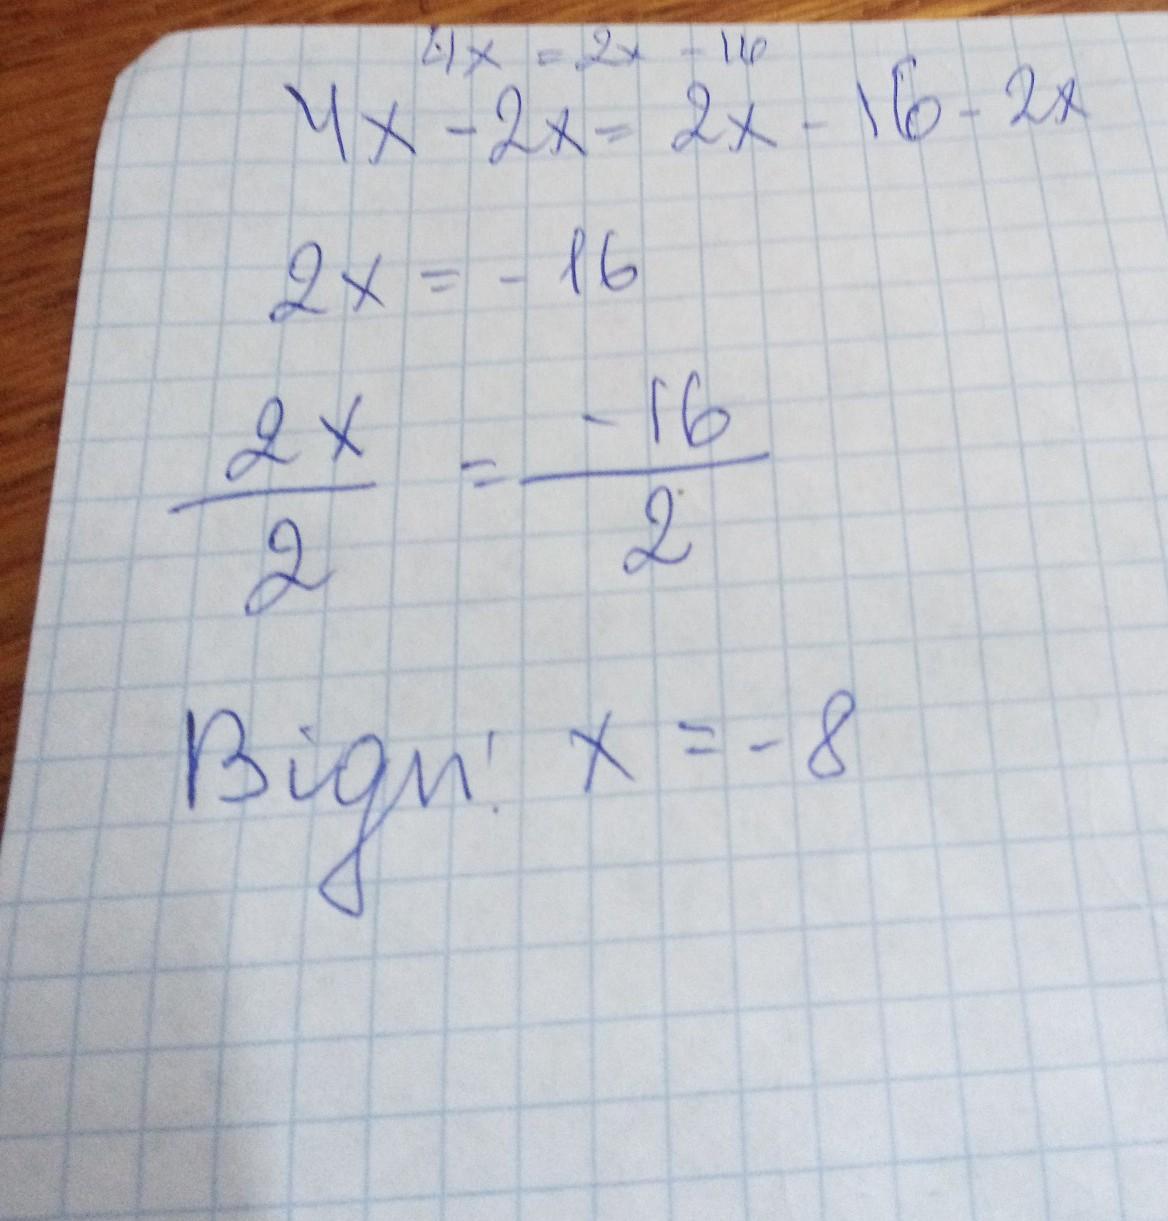 4x = 2x - 16
4x - 2x = 2x - 16 - 2x
2x = - 16
2x/2 = -16/2
Відп: x = - 8